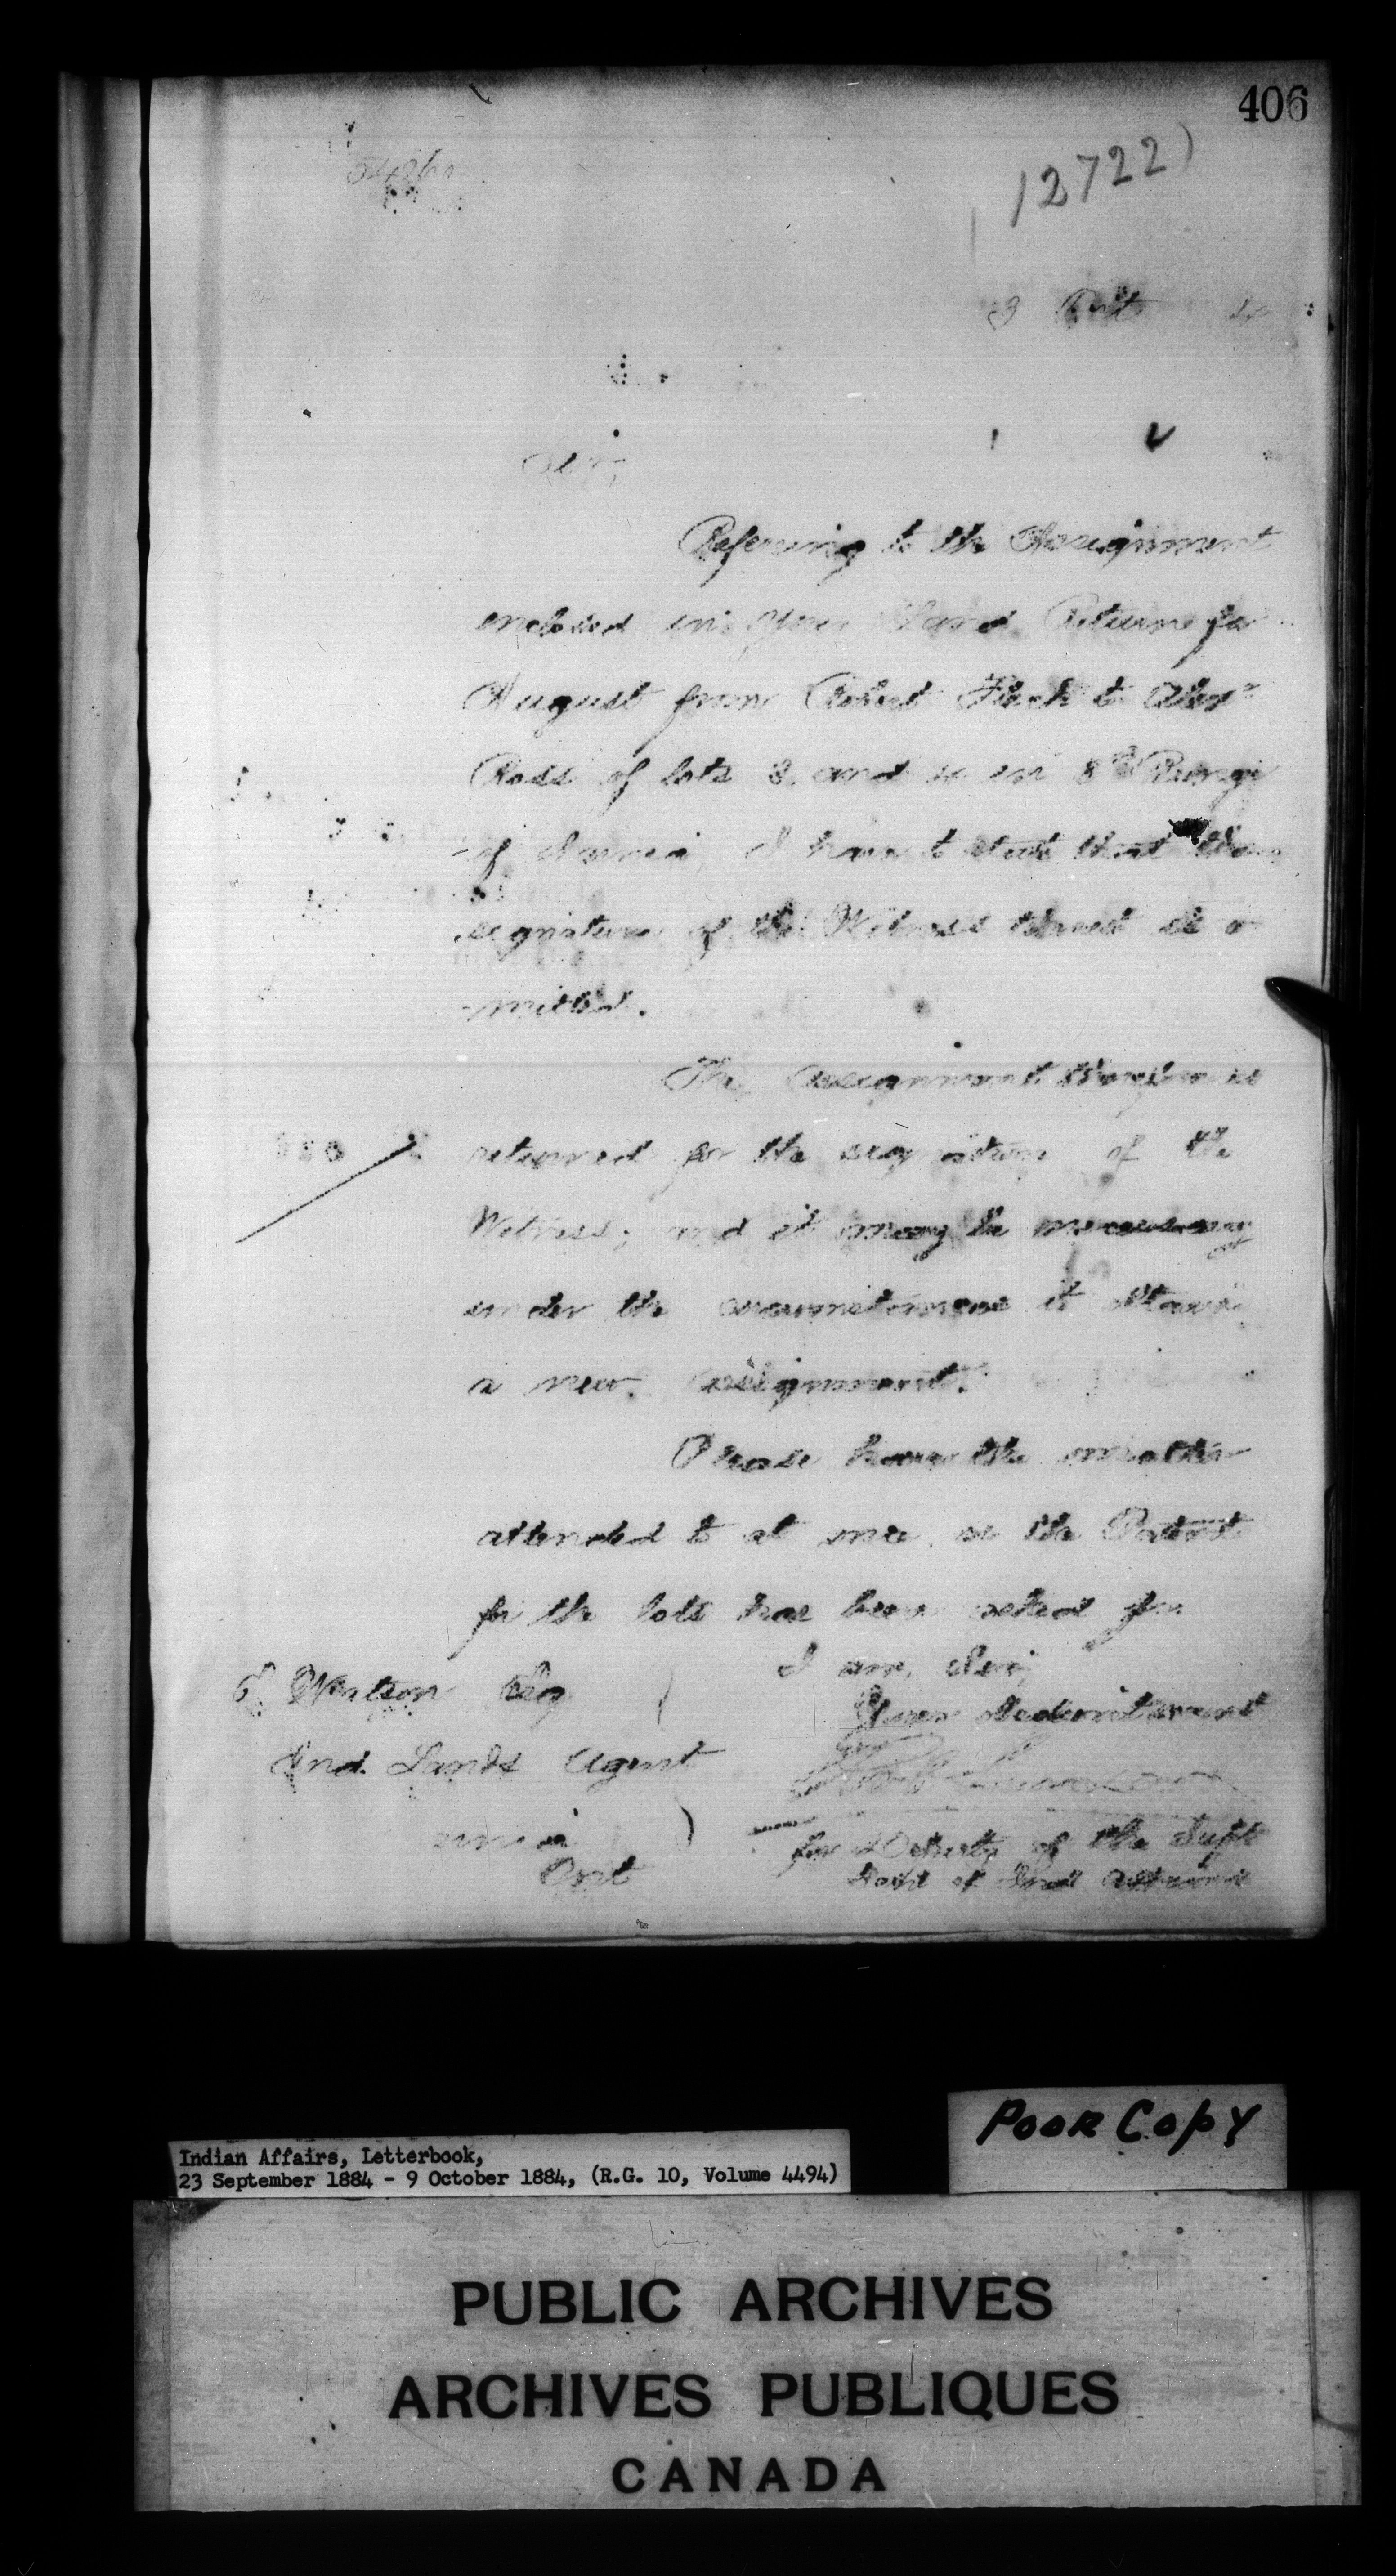 406
12722)
3 Oct
Sir,
Referring to the Assignment
enclosed in your Land Returns for
August from Robert to Alexr
Ross of lots 8 and in 8th Range
of Sarnia, I have to state that the
signature of the Witness thereof is o
-mitted.
The assignment therefore is
returned for the signature of the
Witness; and it may be necessary
under the circumstances to obtain
a new assignment.
Please have the matter
attended to at once as the Patent
for the lots has been asked for
I am, Sir,
E. Watson Esq
Your obedient servant
Ind. Lands Agent
Sarnia
for Deputy of the Supt
Ont
Genl of Ind Affairs
POOR COPY
Indian Affairs, Letterbook,
23 September 1884 - 9 October 1884, (R.G. 10, Volume 4494)
PUBLIC ARCHIVES
ARCHIVES PUBLIQUES
CANADA